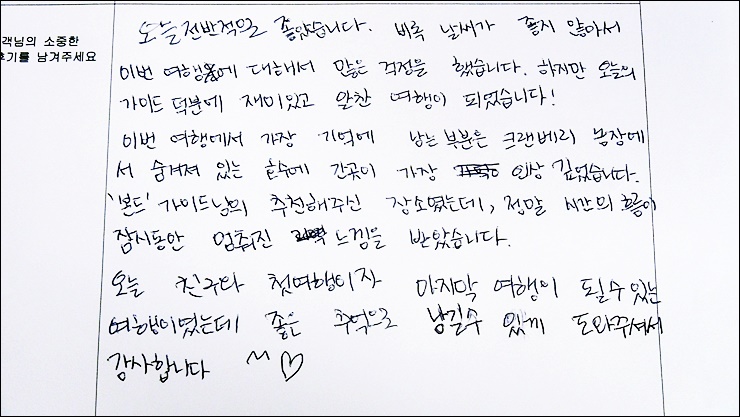 객님의 소중한
후기를 남겨주세요
오늘 전반적으로 좋았습니다. 비록 날씨가 좋지 않아서
이번 여행에 대해서 많은 걱정을 했습니다. 하지만 오늘의
가이드 덕분에 재미있고 알찬 여행이 되었습니다!
이번 여행에서 가장 기억에 남는 부분은 크랜베리 농장에
서 숨겨져 있는 호수에 간곳이 가장 인상 깊었습니다.
'본드' 가이드님의 추천해주신 장소였는데, 정말 시간의 흐름이
잠시동안 멈춰진 느낌을 받았습니다.
오늘 친구와 첫여행이자 마지막 여행이 될수있는
여행이였는데 좋은 추억으로 남길수 있게 도와주셔서
감사합니다 ^^ ♡